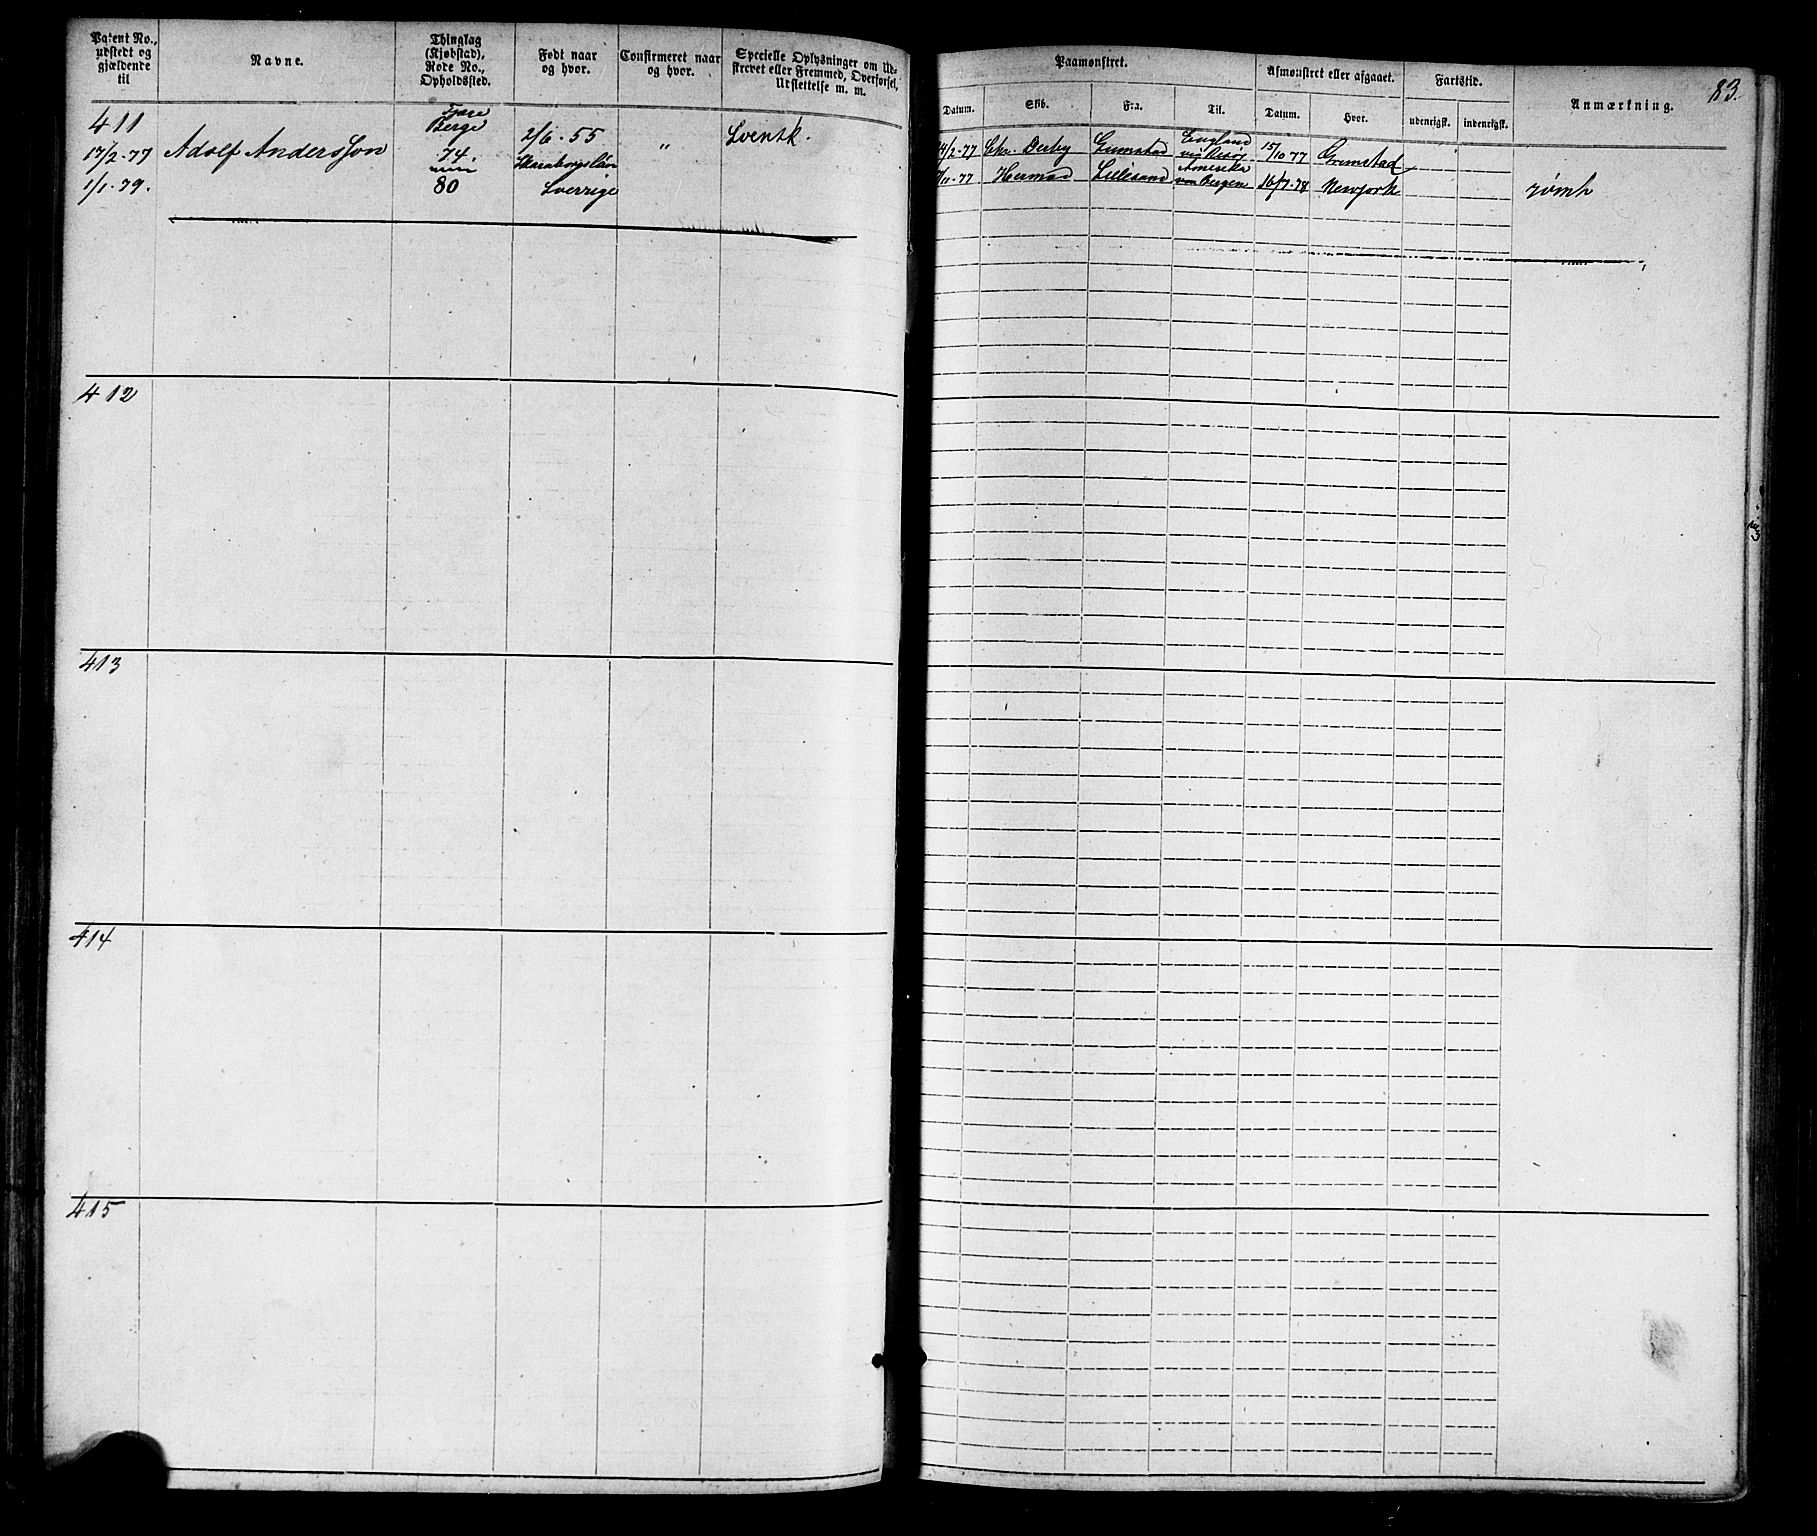 Patent No., udstedt og gjældende til
Navne.
Thinglag (Kjøbstad), Rode No., Opholdssted.
Født naar og hvor.
Confirmeret naar og hvor.
Specielle Oplysninger om Ustrevet eller Fremmed, Overførsel, Utslettelse m. m.
411
17/2-77
1/1.79.
Adolf Andersson
Fjære
Berge
74.
80
2/6.55
Skaraborgslän
Sverrige
"
Svensk.
412
413
414
415
83.
Paamønstret.
Afmønstret eller afgaaet.
Fartstid.
Anmærkning.
Datum.
Skib.
Fra.
Til.
Datum.
Hvor.
udenrigsk.
indenrigsk.
14/2-77 Derby Grimstad England 15/10 77 Grimstad
-77 Lillesand Amerika Bergen 16/7-78 Newyork rømt